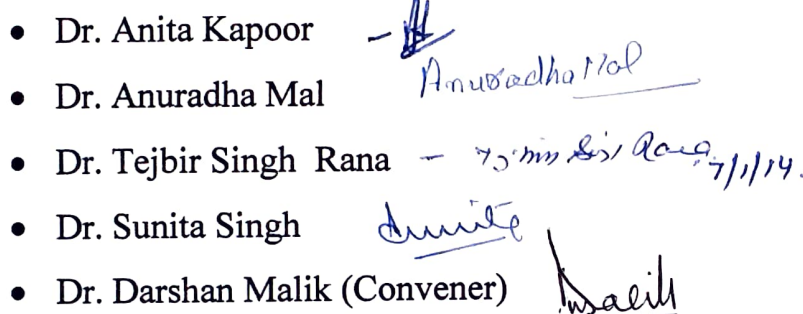 • Dr. Anita Kapoor -
• Dr. Anuradha Mal Anuradha Mal
• Dr. Tejbir Singh Rana - 7/1/14.
• Dr. Sunita Singh Sunita
• Dr. Darshan Malik (Convener)